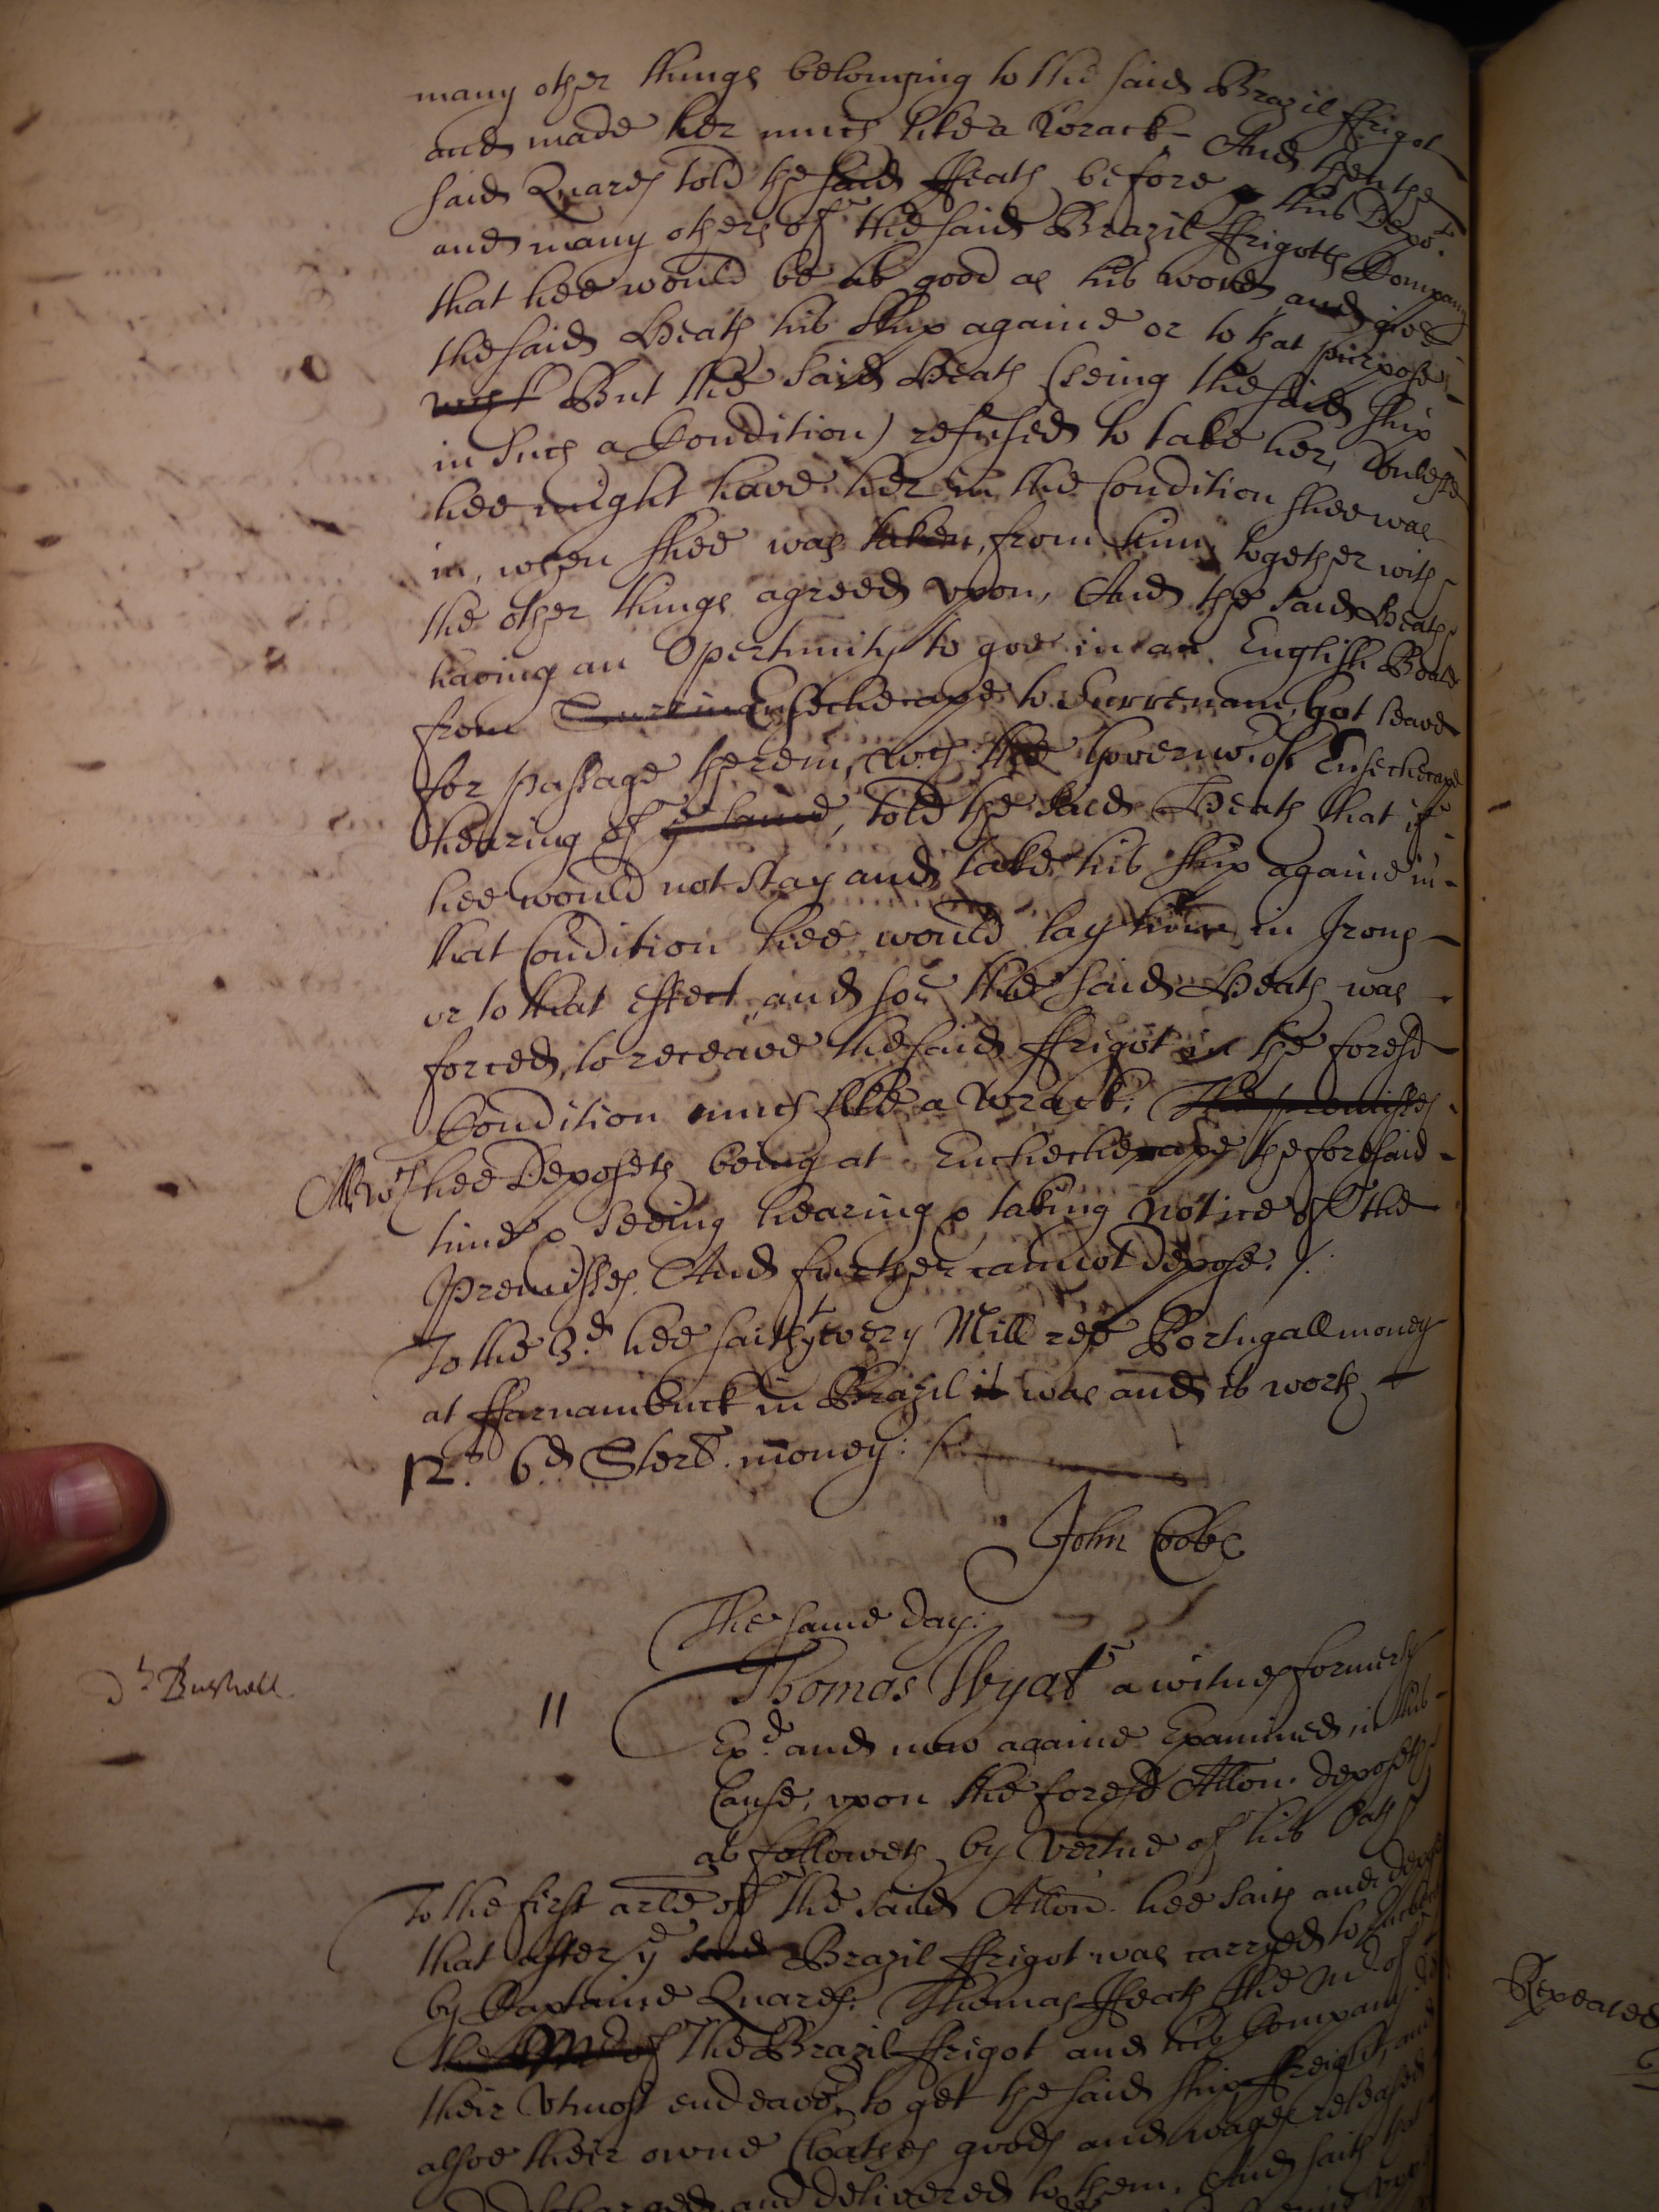 many other things belonging to the said Brazil ffrigot
and made her much like a Worack And then the
said Quares told the said Heath before this Depot
and many others of the said Brazil ffrigotts Company
that hee would be as good as his word and give
the said Heath his ship againe or to that purpose
But the said Heath (seing the said ship
in such a Condition) refused to take her, Unlesse
hee might have her in the Condition shee was
in, when shee was taken, from him together with
the other things agreed vpon, And the said Heath
having an Opertunity to goe in an English Boate
from Ensechecape to Surrenam, got leave
for passage therein, wch the Governor. of Ensechecape
hearing of told the said Heath that if
hee would not stay and take his ship againe in
that Condition hee would lay him in Irons
or to that effect, and soe the said Heath was
forced, to receave the said ffrigot in the foresd
Condition much like a Worack.
All wch hee Deposeth being at Enchechecape the foresaid
time & seeing hearing & taking notice of the
Premisses. And further cannot depose. /.
To the 3d. hee saith yt every Mill res Portugall money
at ffarnambuck in Brazil was and is worth
12s. 6d Sterl. money: /.
John Cobe
The same day:
dt Bushell
11
Thomas Wyat a witnes formerly
Exd. and now againe Examined in this
Cause, vpon the foresd Allon. deposeth
as followeth by Vertue of his Oath
To the first arle of the said Allon. hee saith and depo
that after ye Brazil ffrigot was carryed to
by Captaine Quares: Thomas Heath the Mr. of
the Brazil ffrigot and his Company
their Vtmost endeavor. to get the said ship ffreight, and
alsoe their owne Cloathes goods and wages released
and delivered to them. And saith that
Repeated